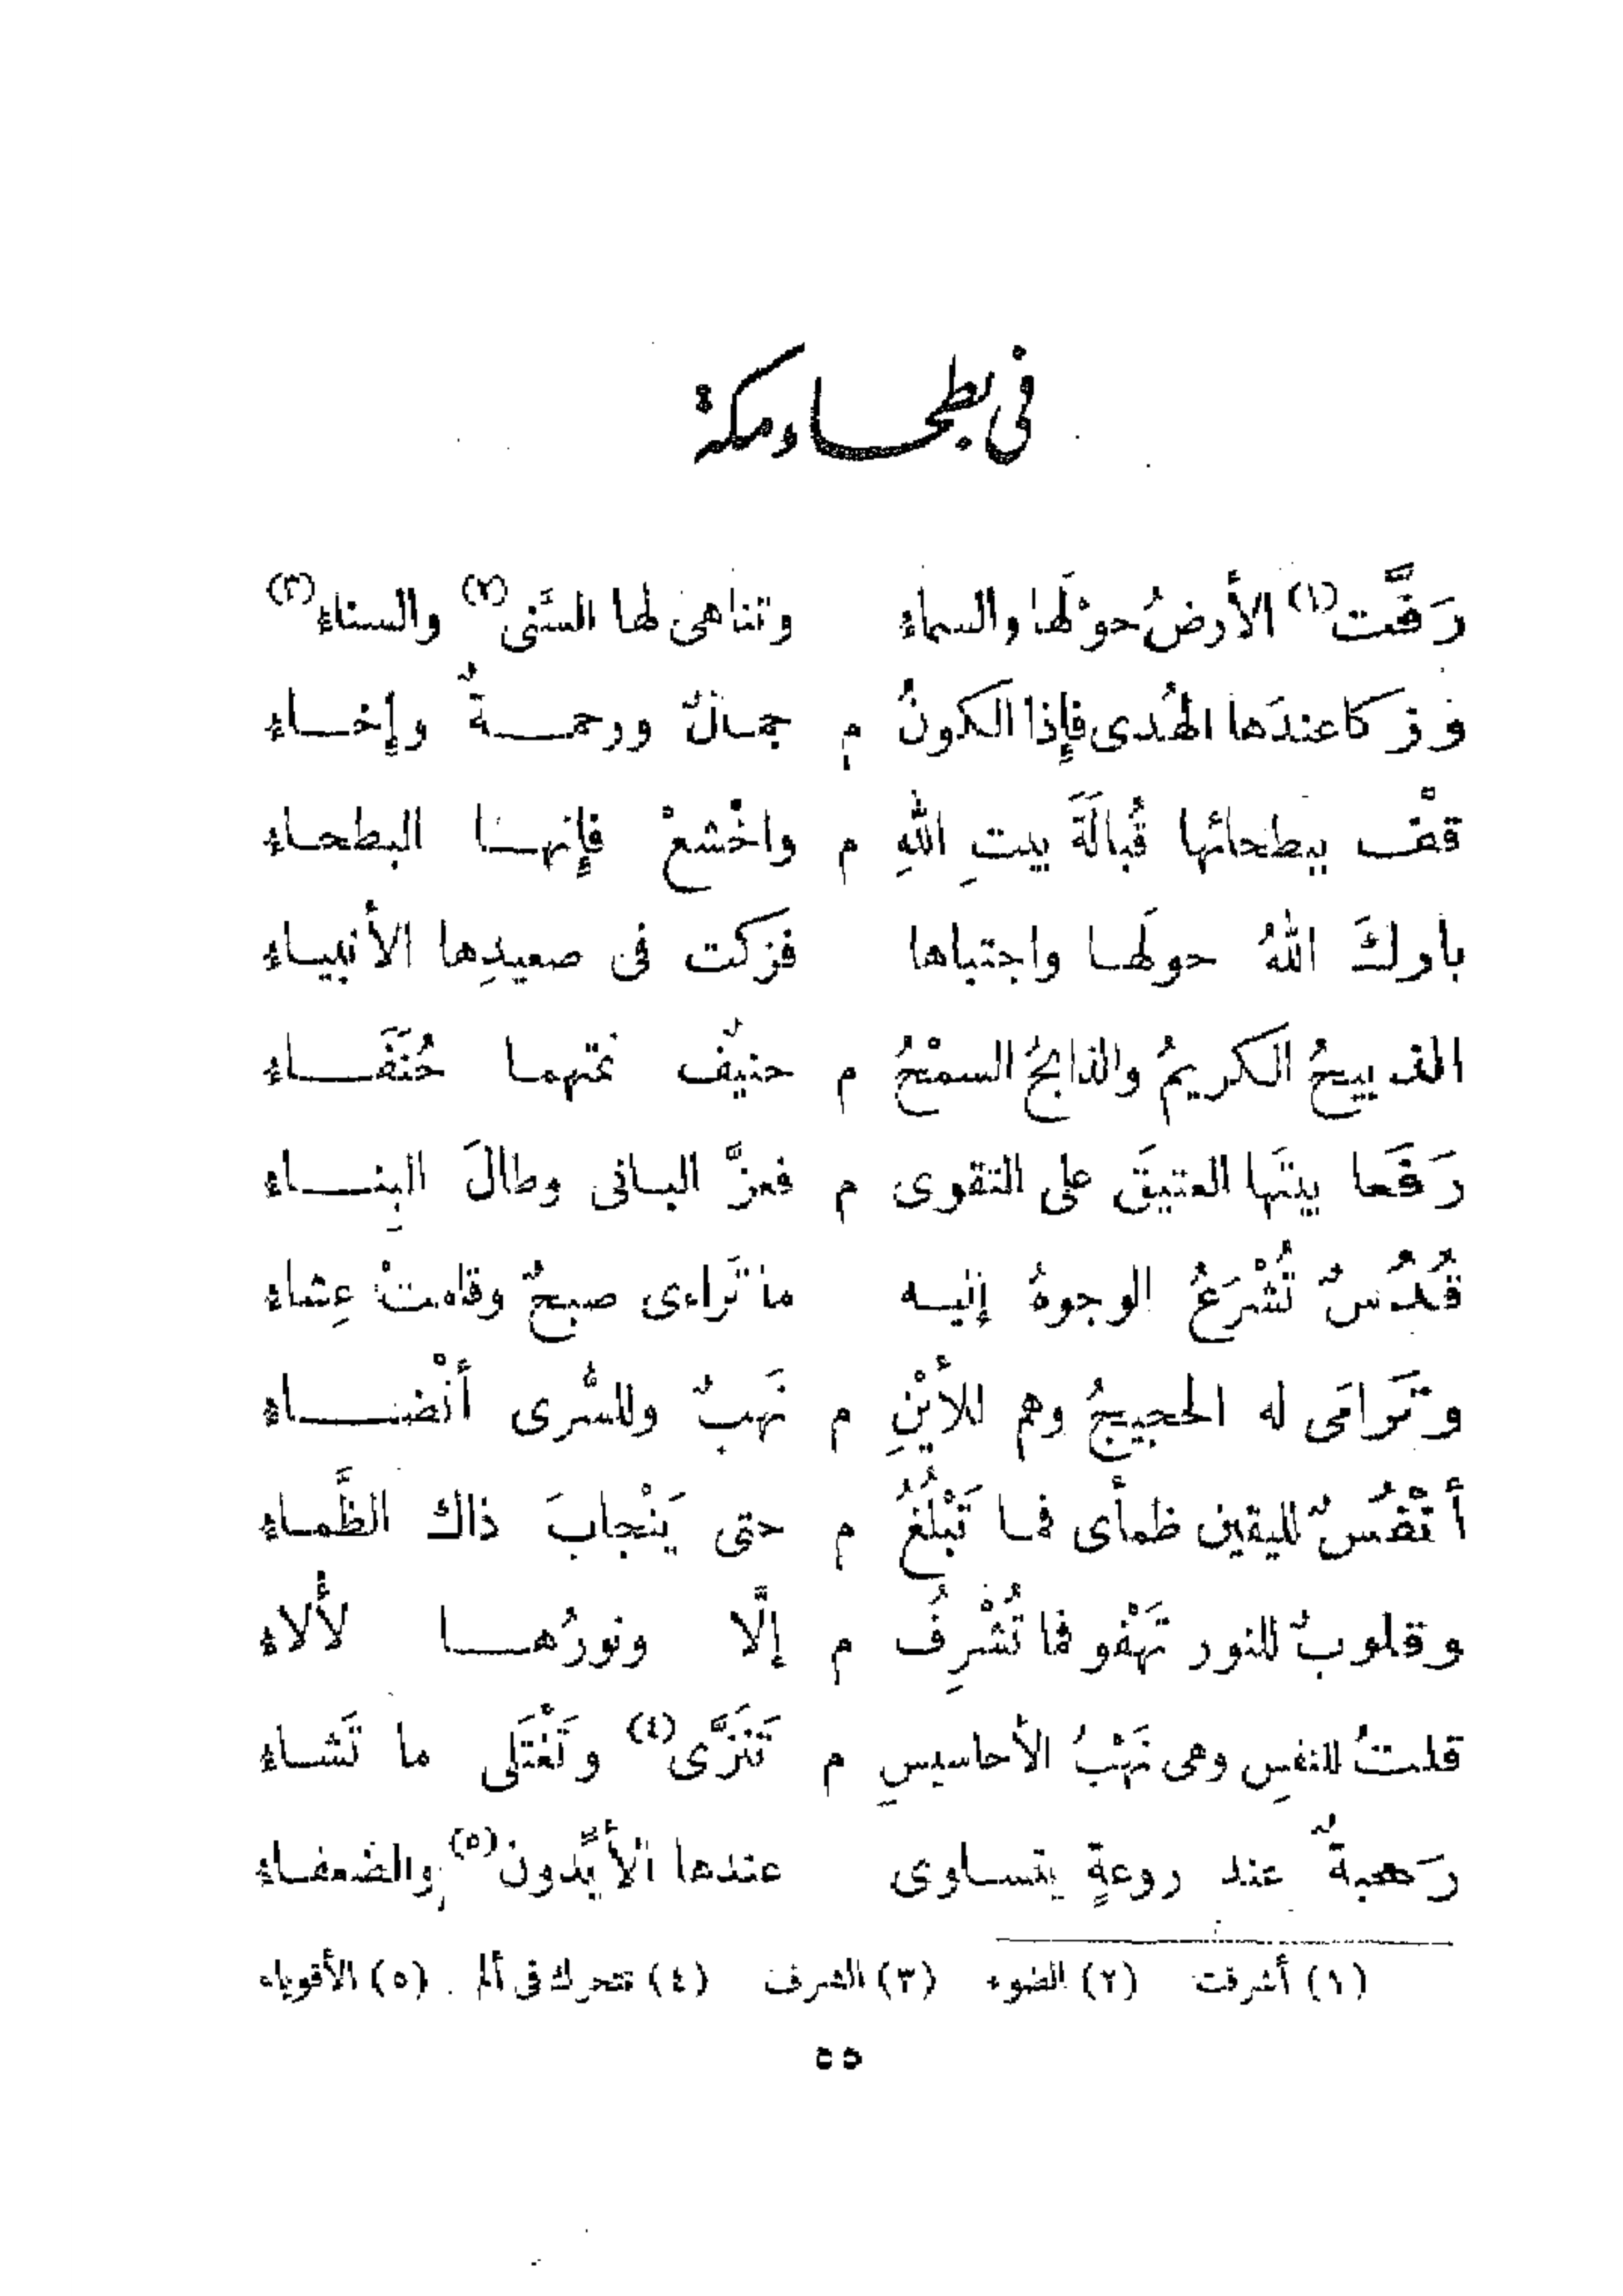 فى بطحاء مكة
رَفَّت(١) الأرضُ حوْلَها والسماء وتناهى لها السَّنى(٢) والسناء(٣)
وزكا عندَها الهُدى فإذا الكونُ م جمالٌ ورحمةٌ وإخاء
قفْ ببطحائها قُبالَةَ بيتِ اللهِ م واخْشعْ فإنها البطحاء
باركَ اللهُ حولَها واجتباها فزَكت فى صعيدِها الأنبياء
الذبيحُ الكريمُ والذابحُ السمْحُ م حنيفٌ نمتهما حُنَفَاء
رَفَعا بيتَها العتيقَ على التقوى م فعزَّ البانى وطالَ البِناء
قُدُسٌ تُشْرَعُ الوجوهُ إليه ما تَراءى صبحٌ وقامتْ عِشاء
وتَرامَى له الحجيجُ وهم للأيْنِ م نَهبٌ وللسُّرى أنْضاء
أنْفُسٌ لليقين ظمأى فما تَبْلُغُ م حتى يَنْجابَ ذاك الظَّماء
وقلوبٌ للنور تَهْفو فما تُشْرِفُ م إلَّا ونورُها لألاء
قلتُ للنفسِ وهى نَهْبُ الأحاسيسِ م تَتَنزَّى(٤) وتَغْتَلَى ما تَشاء
رَهبةٌ عند روعةٍ يتساوى عندها الأيِّدون(٥) والضعفاء
(١) أشرقت (٢) الضوء (٣) الشرف (٤) تتحرك فى ألم . (٥) الأقوياء
٥٥